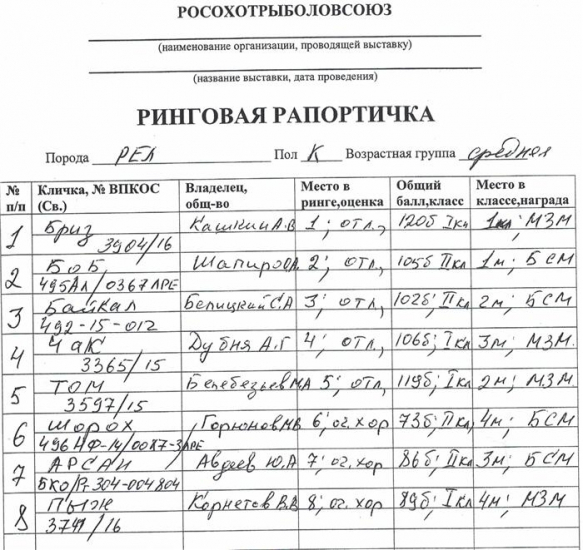 РОСОХОТРЫБОЛОВСОЮЗ
(наименование организации, проводящей выставку)
(название выставки, дата проведения)
РИНГОВАЯ РАПОРТИЧКА
Порода РЕЛ Пол К Возрастная группа средняя
№ п/п Кличка, № ВПКОС (Св.) Владелец, общ-во Место в ринге,оценка Общий балл,класс Место в классе,награда
1 Бриз 3904/16 Кашкин А.В 1; отл., 120б Iкл 1м; МЗМ
2 Боб 495АЛ/0367ЛРЕ Шапиро А. 2; отл., 105б IIкл 1м; БСМ
3 Байкал 492-15-012 Белицкий С.А 3; отл, 102б; IIкл 2м; БСМ
4 Чак 3365/15 Дубня А.Г 4; отл., 106б; Iкл 3м; МЗМ.
5 Том 3597/15 5; отл, 119б; Iкл 2м; МЗМ
6 Шорох Горюнов 6; оч. хор 73б; IIкл, 4м; БСМ
7 АРСАН БКО/Р.304-004804 Авдеев Ю.А 7; оч. хор 86б; IIкл 3м; БСМ
8 Пыж 3741/16 Корнетов В.В 8; оч. хор 89б; Iкл 4м; МЗМ